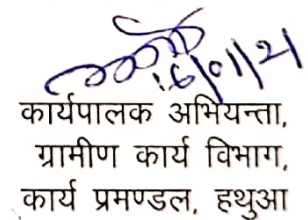 16/01/21
कार्यपालक अभियन्ता,
ग्रामीण कार्य विभाग,
कार्य प्रमण्डल, हथुआ